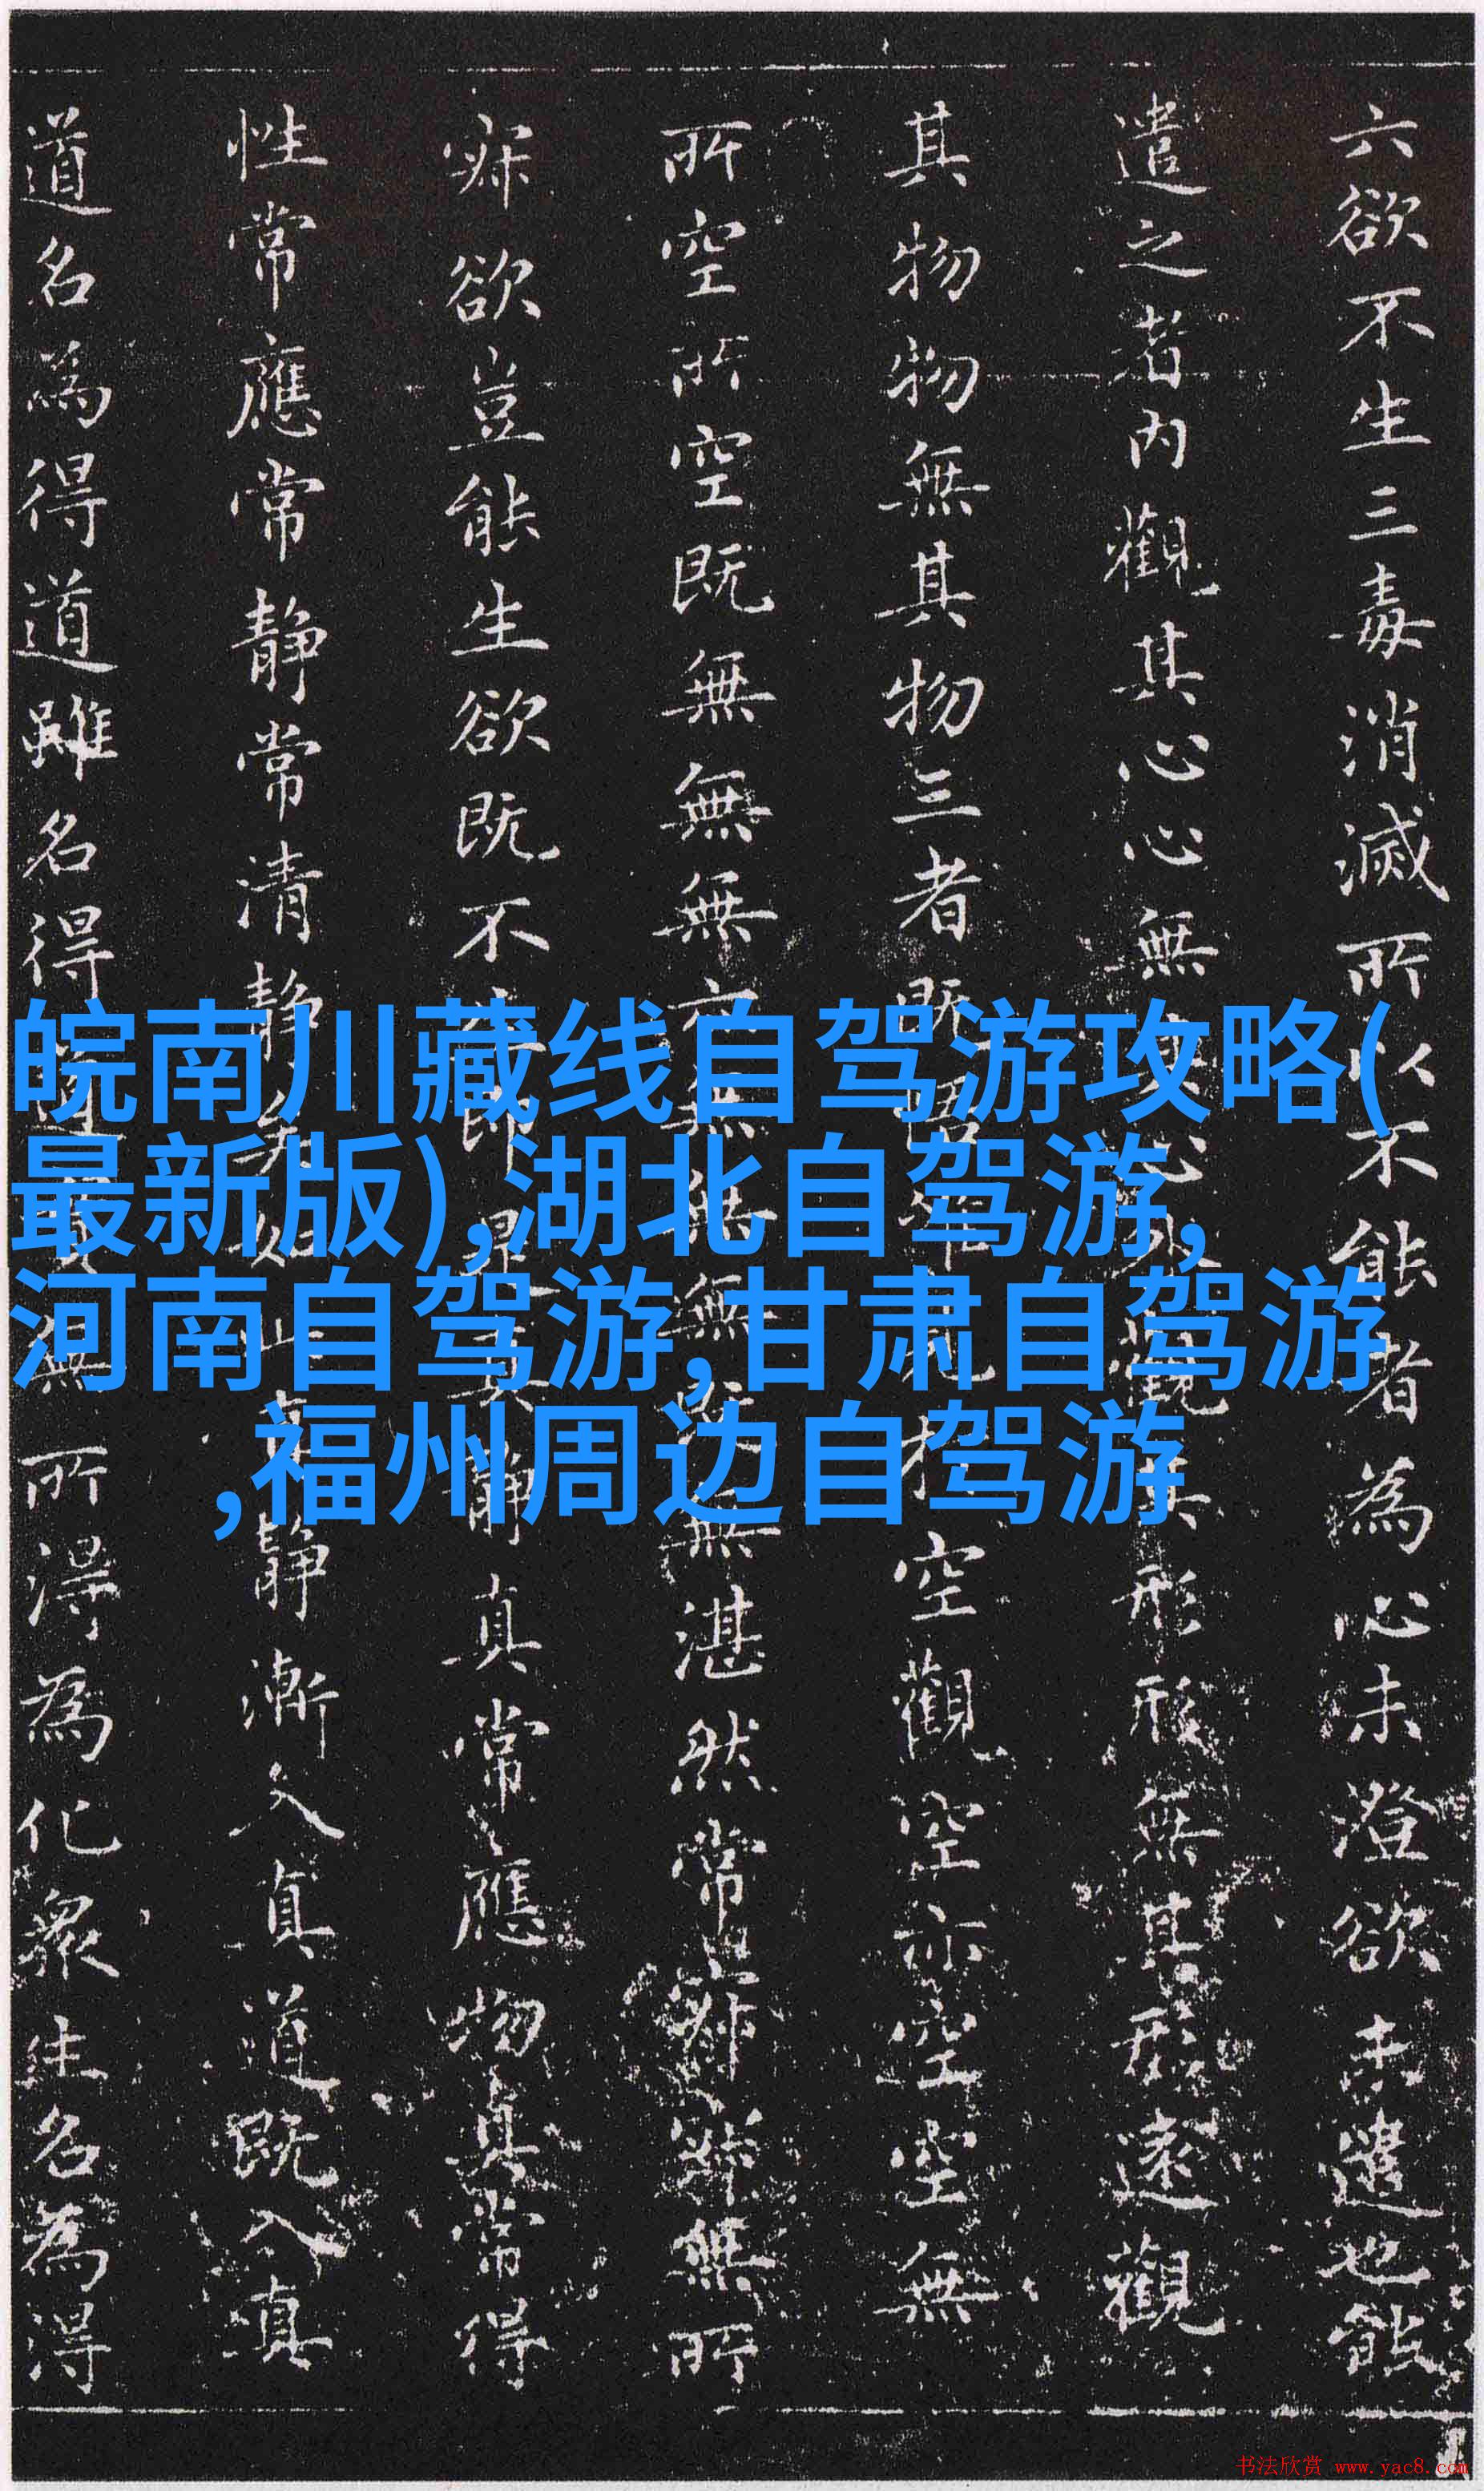 六欲不生三毒消滅所以不能者為心未澄欲未遣也能
遣之者内觀其心心無其心外觀其形形無其形遠觀
其物物無其物三者既悟唯見於空觀空亦空空無
所空所空既無無無亦無無無既無湛然常寂寂無所
寂欲豈能生欲既不生即是真静真常應物真常得
性常應常静常清静矣如此真静漸入真道既入真
道名為得道雖名得道實無所得為化衆生名為得
皖南川藏线自驾游攻略(
最新版),湖北自驾游,
河南自驾游,甘肃自驾游
,福州周边自驾游
书法欣赏 www.yac8.com